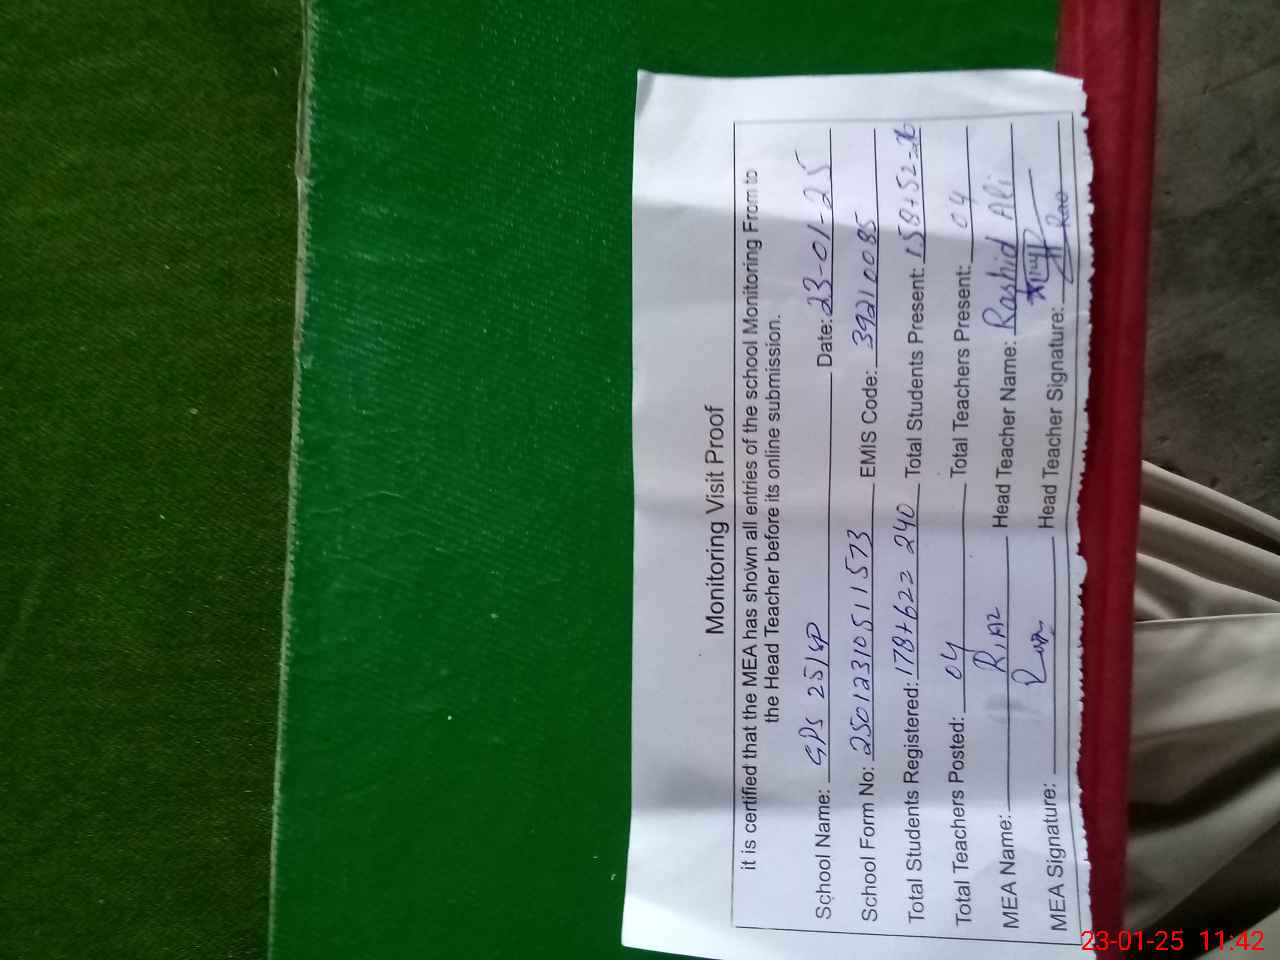 Monitoring Visit Proof
it is certified that the MEA has shown all entries of the school Monitoring From to
the Head Teacher before its online submission.
School Name: GPS 25/SP Date: 23-01-25
School Form No: 25012310511573 EMIS Code: 39210085
Total Students Registered: 178+62= 240 Total Students Present: 158+52=
Total Teachers Posted: 04 Total Teachers Present: 04
MEA Name: Riaz Head Teacher Name: Rashid Ali
MEA Signature: Head Teacher Signature:
23-01-25 11:42